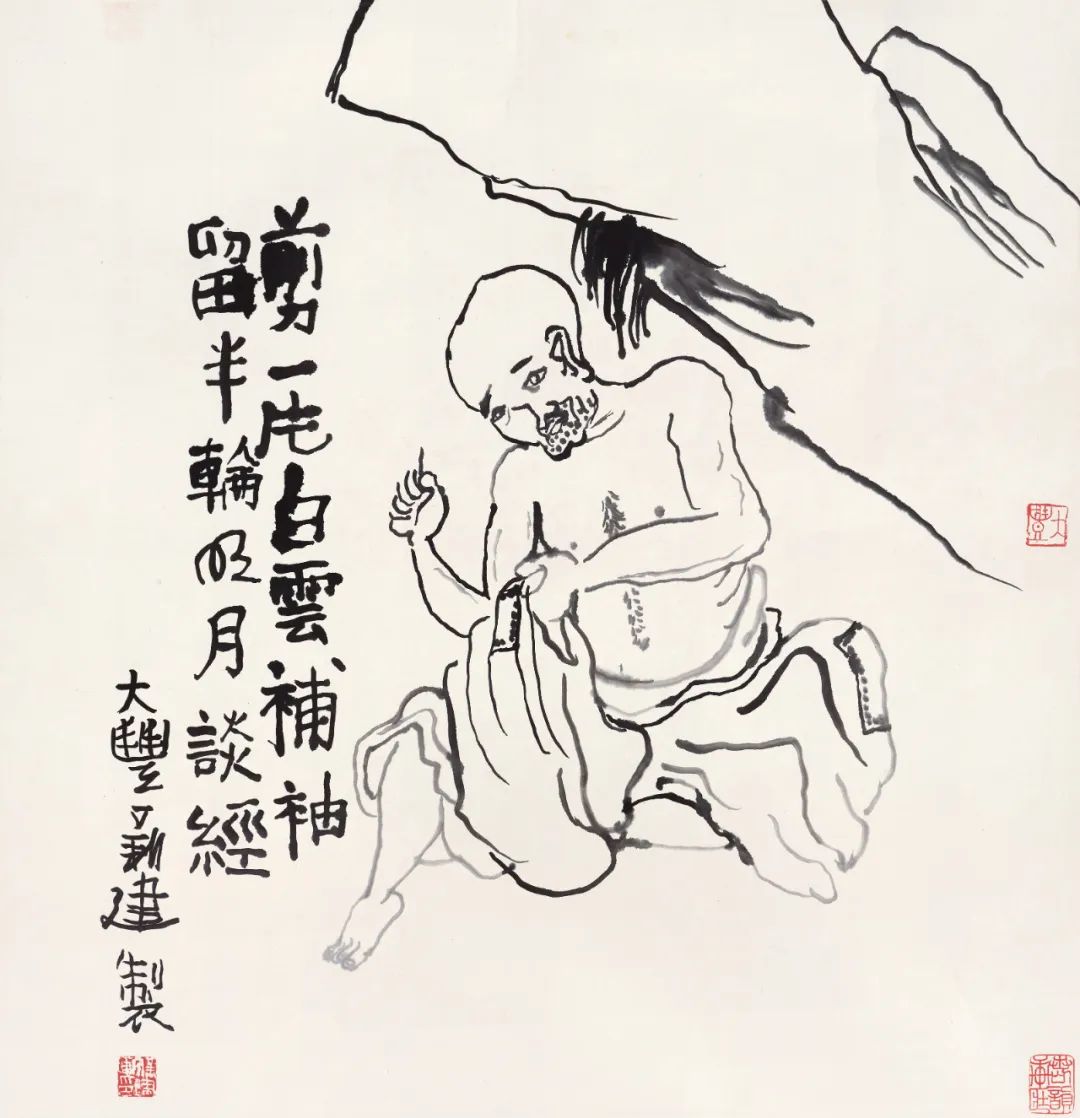 剪一片白雲補袖
留半輪明月談經
大豐新建製
大豐